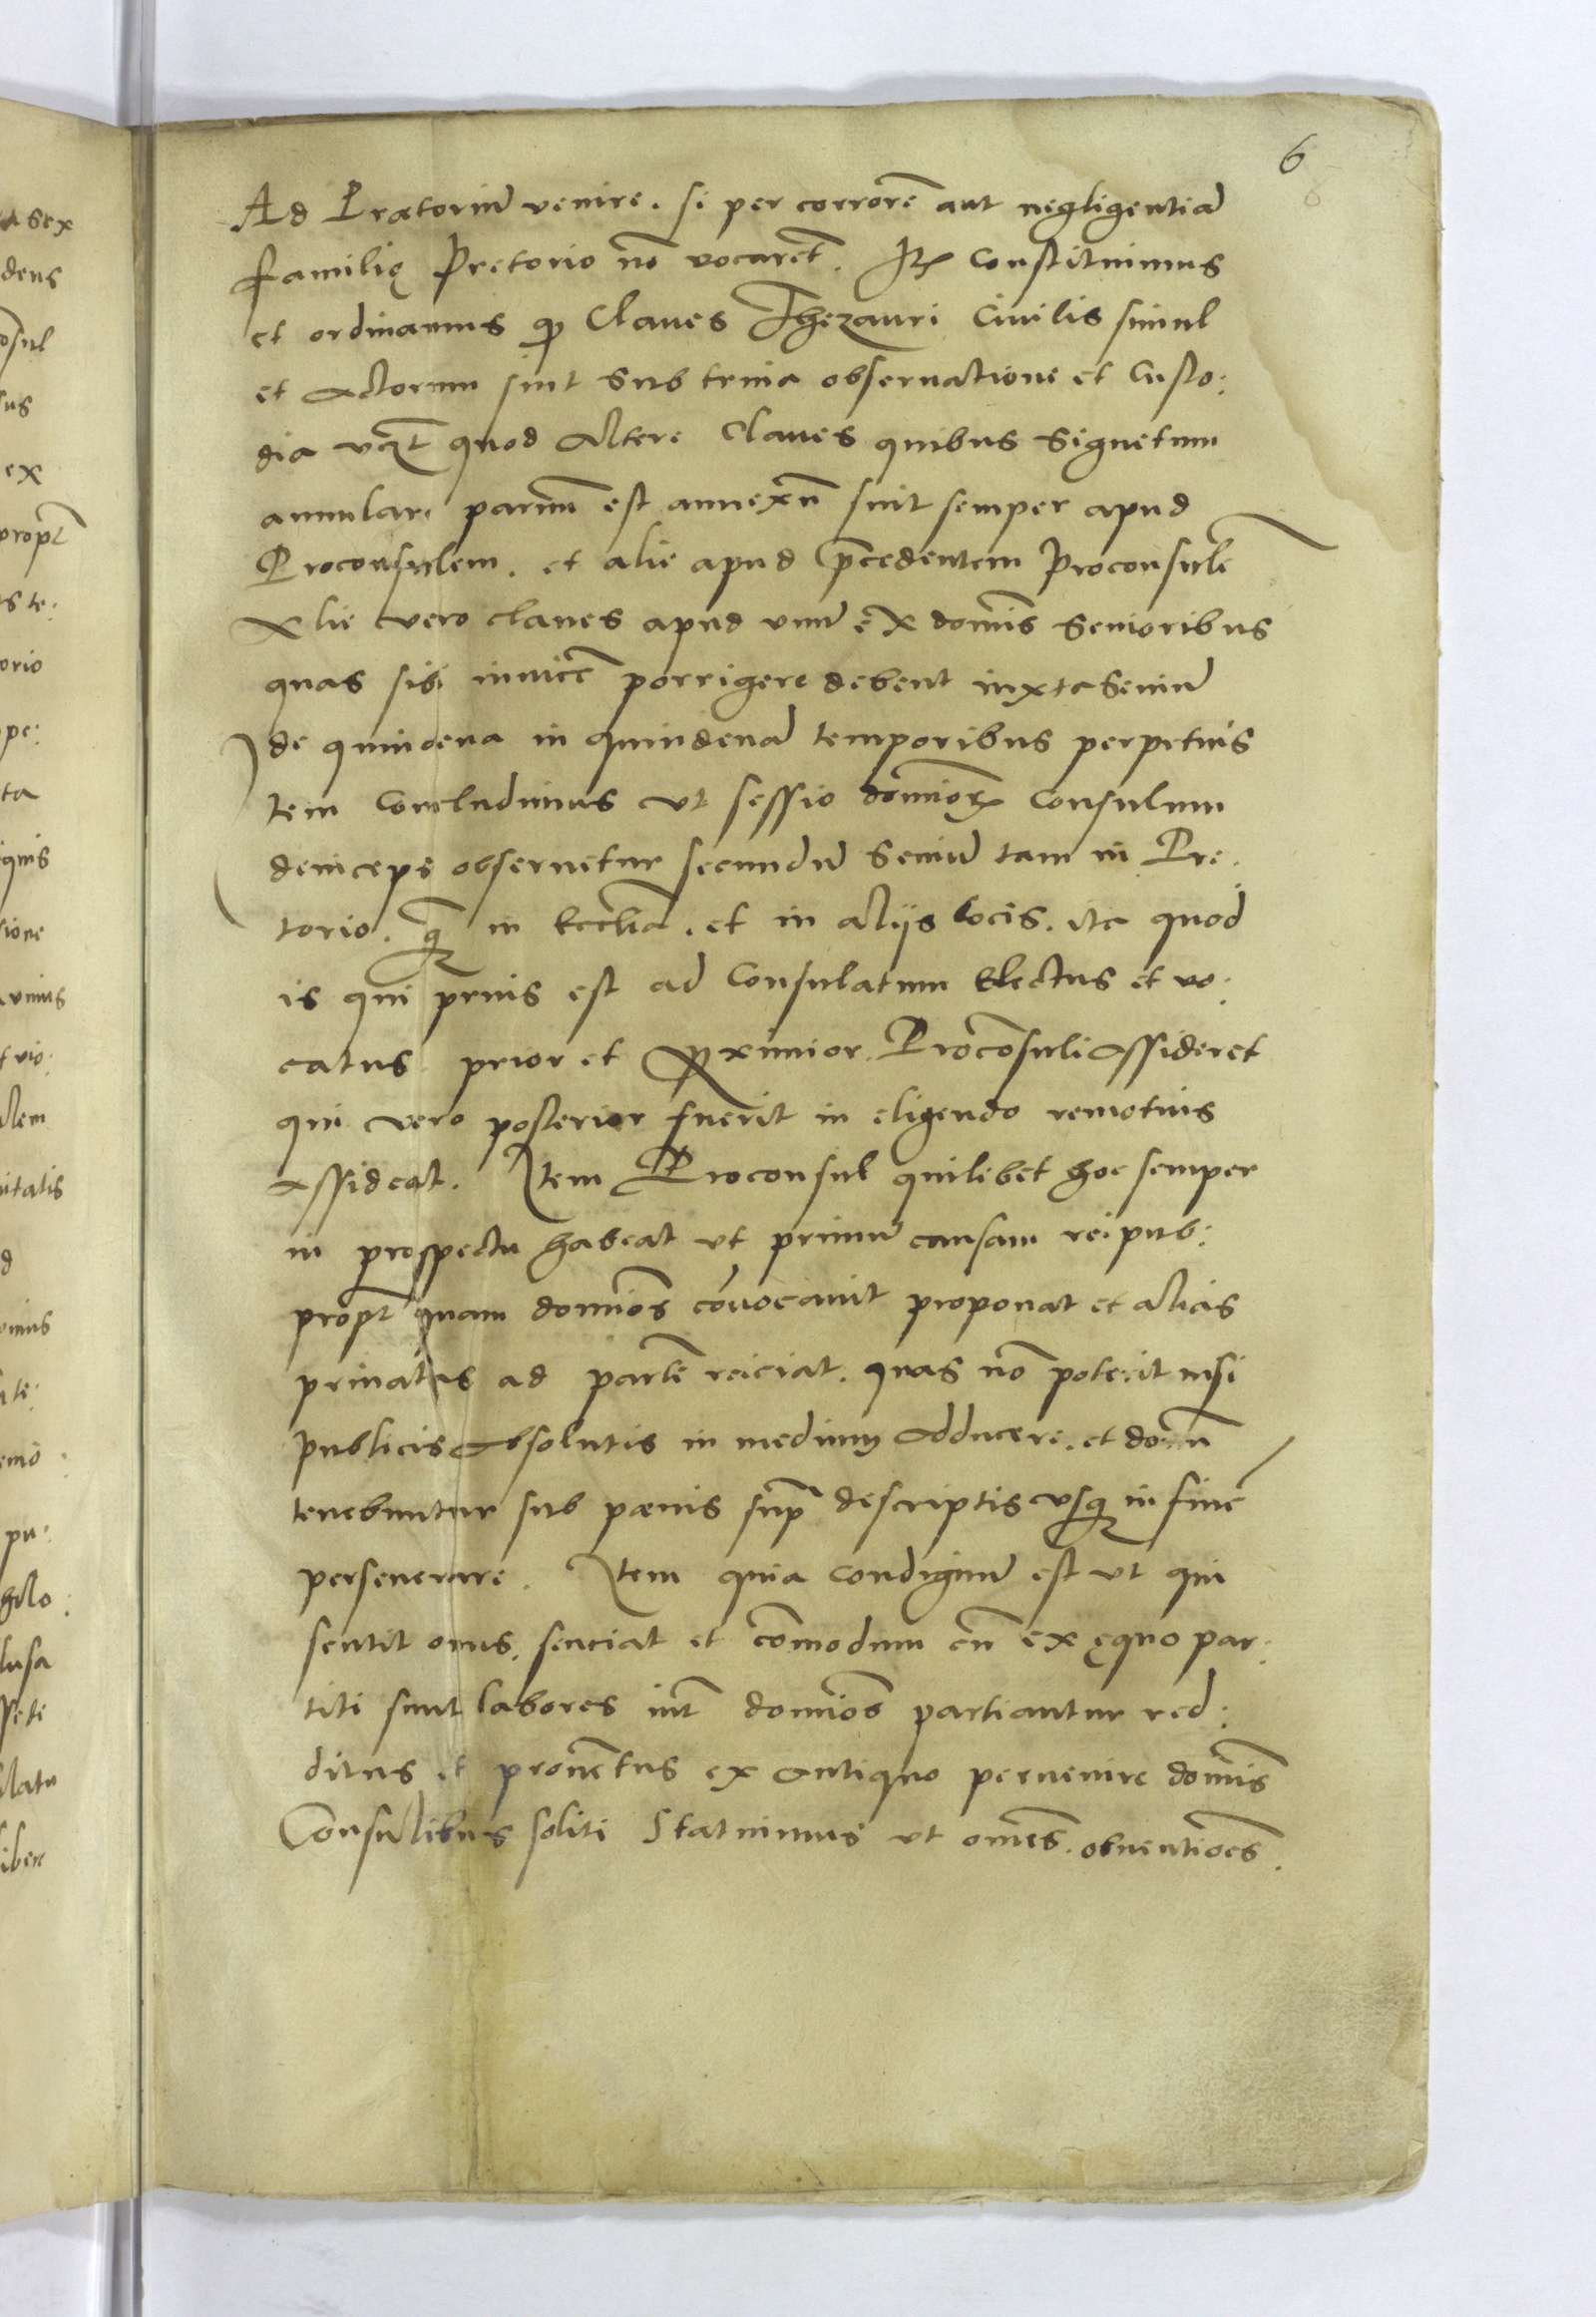 6
Ad Prætoriũ venire. si per corrorẽ aut negligentiã
familię Pretorio nõ vocarẽt. Itẽ Constituimus
et ordinamus qͥ Claues Thezauri Ciuilis simul
et Actorum sint Sub trina obseruatione et Custo:
dia vczt quod Altere Claues quibus Signetum
annulare paruũ est annexũ sint semper apud
Proconsulem. et alie apud p̃cedentem Proconsulẽ
Alie vero claues apud vnũ ex domĩs Senioribus
quas sibi inuicẽ porrigere debent iuxta Seniũ
de quindena in quindenã temporibus perpetuis
Item Concludimus vt sessio dominoꝝ Consulum
deinceps obseruetur secundũ Seniũ tam in Pre:
torio. q̃ in Ecclia. et in alijs locis. ita quod
is qui prius est ad Consulatum Electus et vo:
catus prior et ꝓximior. Procõsuli Assideret
qui vero posterior fuerit in eligendo remotius
Assideat. Item Proconsul quilibet hoc semper
in prospectu habeat vt primũ causam reipub:
propt̃ quam dominos cõuocauit proponat et alias
priuatas ad partẽ reiciat. quas nõ poterit nisi
publicis Absolutis in medium Adducere. et domĩ
tenebuntur sub pœnis sup̃ descriptis vsq; in finẽ
perseuerare. Item quia condignũ est vt qui
sentit onus, senciat et cõmodum cũ ex ęquo par:
titi sunt labores int̃ dominos partiantur red:
ditus et prouẽtus ex Antiquo peruenire domĩs
Consulibus soliti Statuimus vt om̃es. obuentiões.